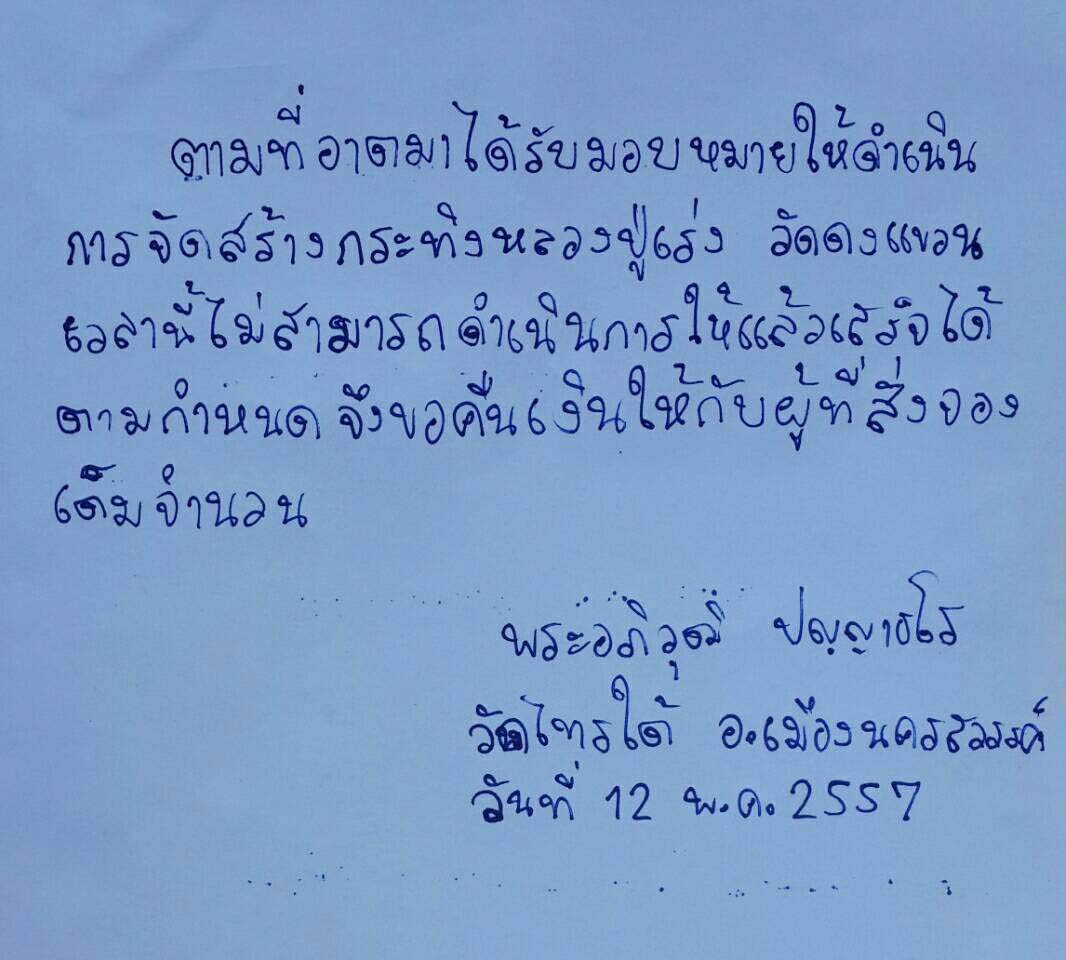 ตามที่อาตมาได้รับมอบหมายให้ดำเนิน
การจัดสร้างกระทิงหลวงปู่แร่ง วัดดงแขวน
เวลานี้ไม่สามารถดำเนินการให้แล้วเสร็จได้
ตามกำหนด จึงขอคืนเงินให้กับผู้ที่สั่งจอง
เต็มจำนวน
พระอภิวุฒิ ปญฺญาธโร
วัดไทรใต้ อ.เมืองนครสวรรค์
วันที่ 12 พ.ค. 2557